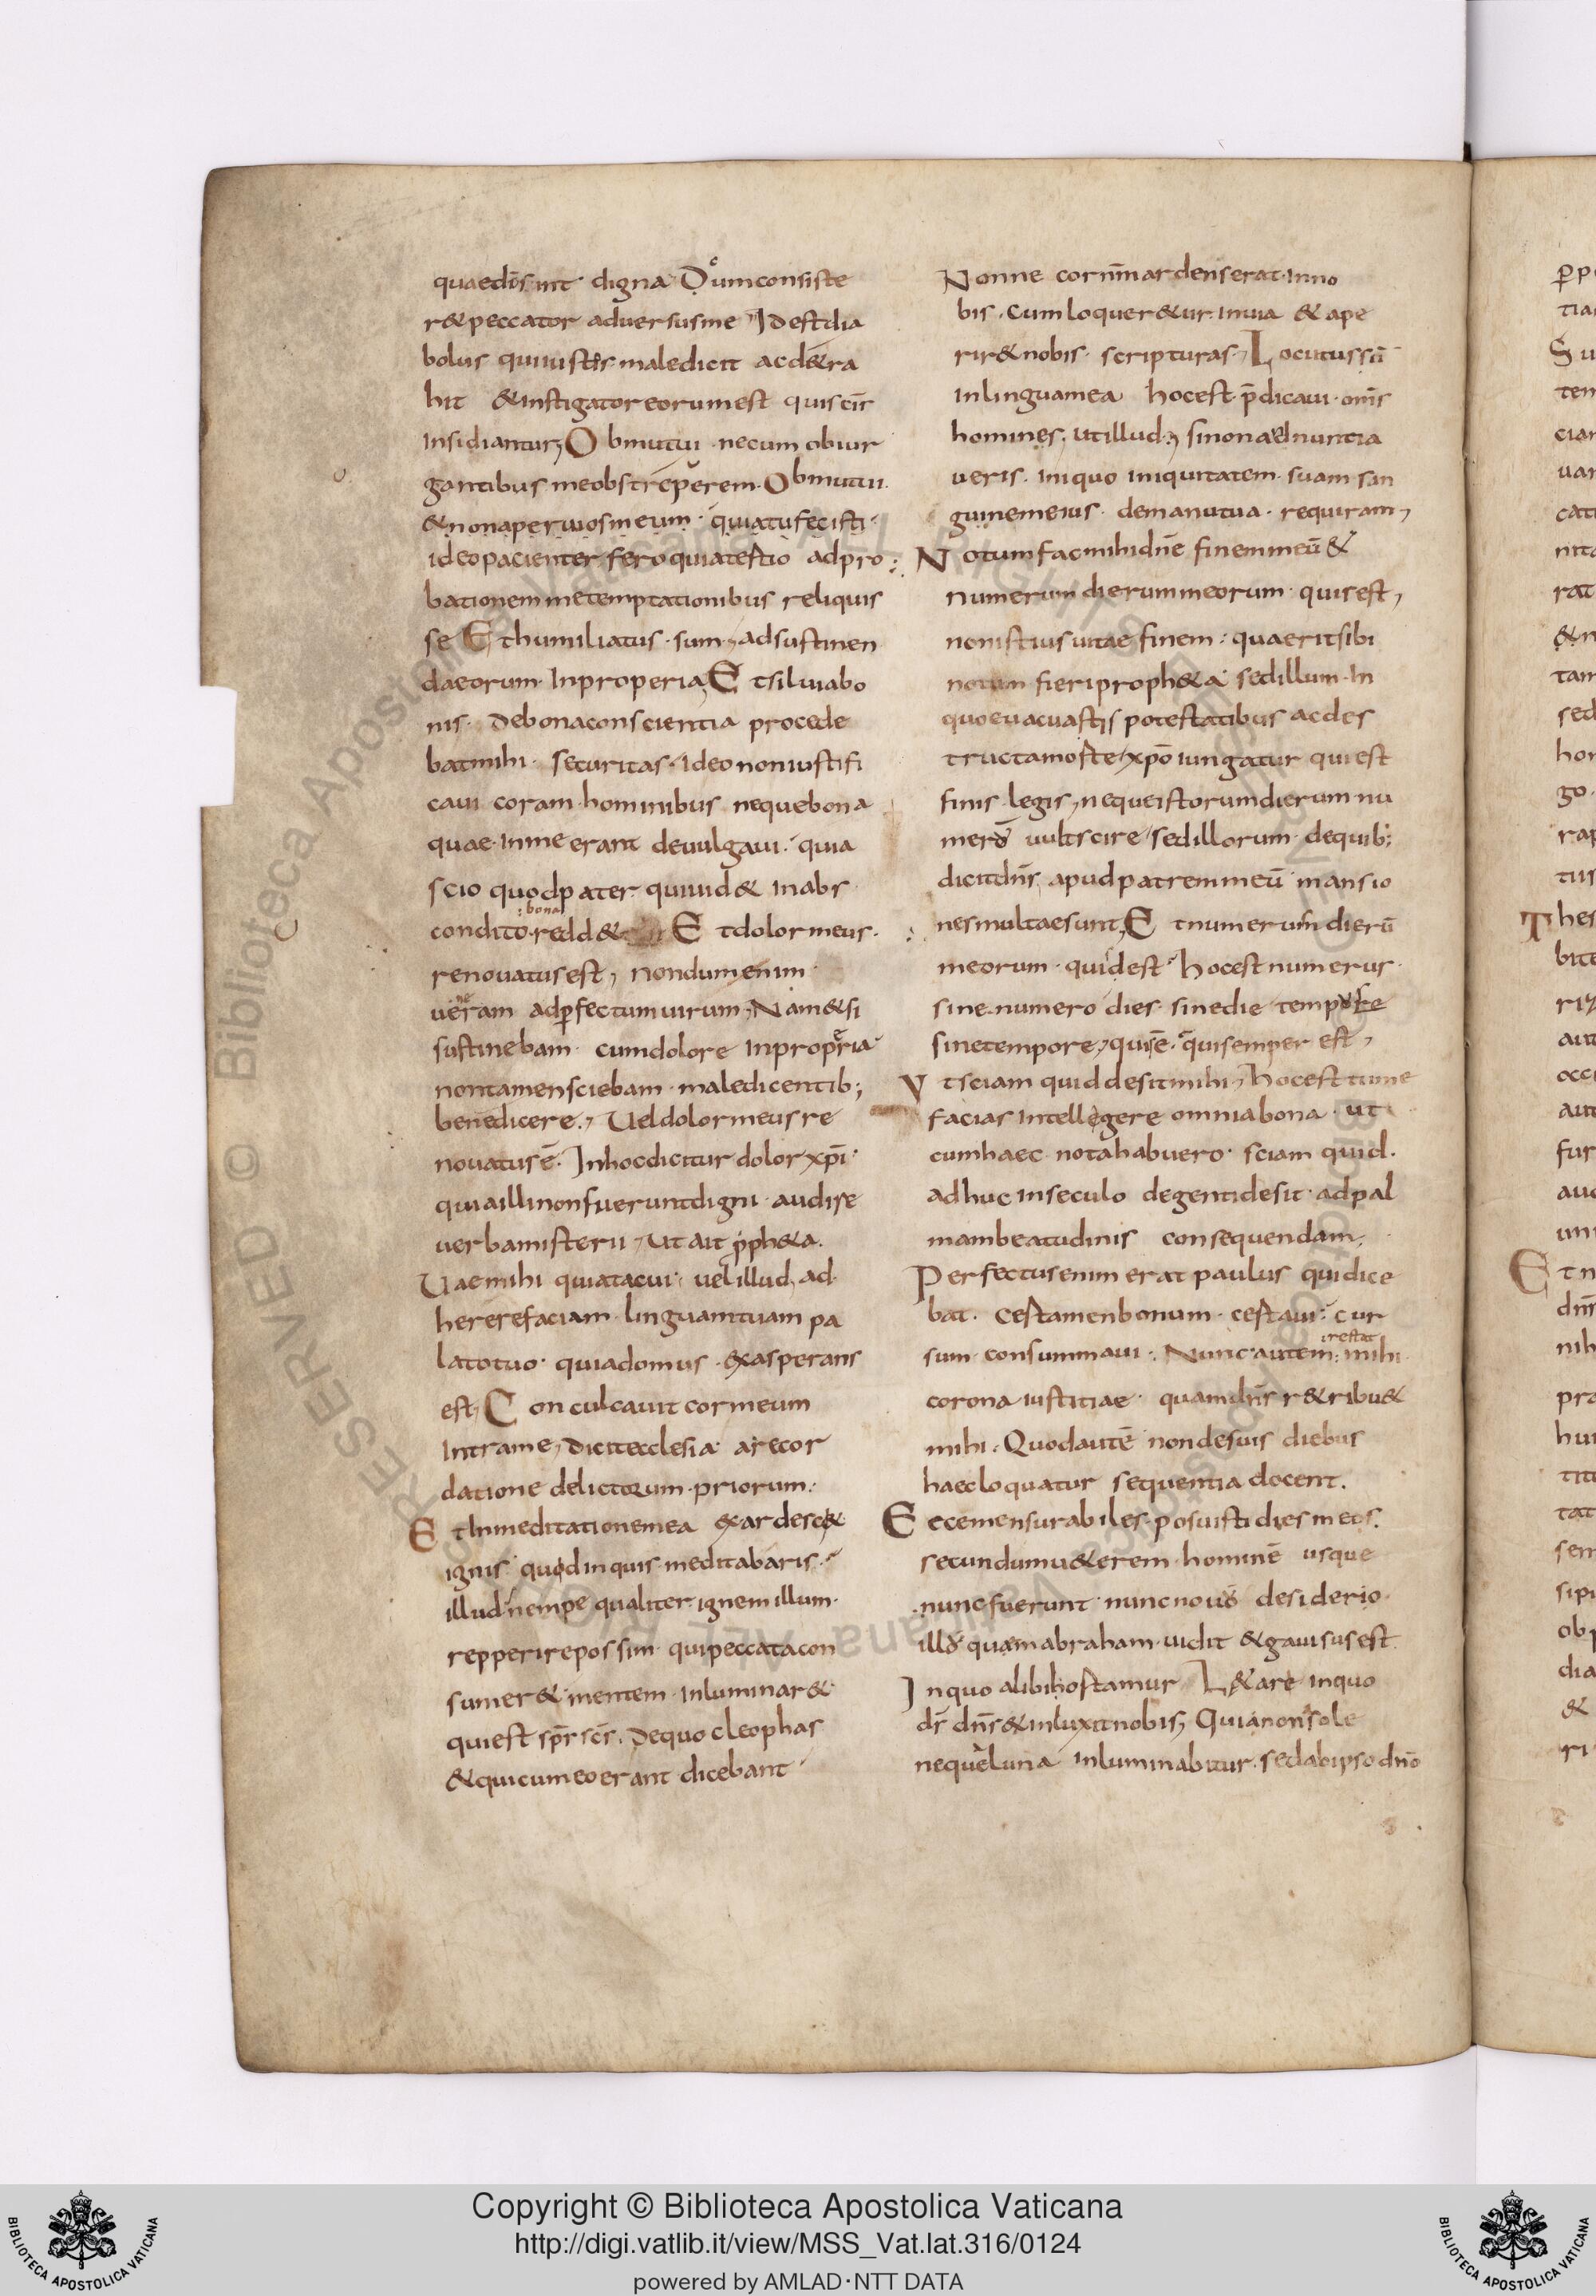 quaedōsint digna Dūmconsiste
r&peccator aduersusme Idestdia
bolus quiiustis maledicit acd&ra
hit &instigatoreorumest quiscīs
insidiantur, Obmutui necum obiur
gantibus meobstreperem. Obmutui
&nonaperuiosmeum. quiatufecisti
ideopacienter feroquiatestio adpro
bationem metemptationibus reliquis
se Ethumiliatus sum, adsustinen
daeorum Inproperia, Etsiluiabo
nis. Debonaconscientia procede
batmihi. securitas. ideononiustifi
caui coram hominibus nequebona
quae inme erant deuulgaui. quia
scio quodpater quiuid& inabs
condito bona redd& Etdolormeus.
renouatusest, nondumenim
ueneram adꝑfectumuirum, Nam&si
sustinebam cumdolore Inproperia
nontamensciebam maledicentib;
benedicere, Ueldolormeusre
nouatusē. Inhocdicitur dolor xp̄i
quiaillinonfueruntdigni audire
uerbamisterii, ut ait p̄ph&a.
Uaemihi quiatacui. uelillud, ad
hererefaciam linguamtuam pa
latotuo. quiadomus exasperans
est, Conculcauit cormeum
Intrame, dicitecclesia arecor
datione delictorum priorum.
EtInmeditationemea exardesc&
ignis quodinquis meditabaris.
illud nempe qualiter ignemillum.
repperirepossim quipeccatacon
sumer& mentem inluminar&
quiest sp̄s sc̄s. Dequo cleophas
&quicumeoerant dicebant
Nonne cornr̄mardenserat inno
bis. Cumloquer&ur inuia &ape
rir&nobis scripturas, Locutussū
inlinguamea hocest p̄dicaui om̄s
homines, utillud, sinonadnuntia
ueris. iniquo iniquitatem suam san
guinemeius demanutua requiram,
Notumfacmihidn̄e finemmeū &
numerum dierummeorum quisest,
nonistiusuitae finem quaeritsibi
notum fieriproph&a sedillum In
quoeuacuastis potestatibus acdes
tructamorte xp̄o iungatur quiest
finis legis, nequeistorumdierum nu
merū uultscire sedillorum dequib;
dicitdn̄s apudpatremmeū mansio
nesmultaesunt, Etnumerum dierū
meorum quidest hocestnumerus
sine numero dies sinedie tempore
sinetempore, quisē. quisemper est,
Utsciam quiddesitmihi, hocesttume
facias intellegere omniabona ut
cumhaec notahabuero sciam quid.
adhuc inseculo degentidesit adpal
mambeatudinis consequendam,
Perfectusenim erat paulus quidice
bat. Certamenbonum certaui. cur
sum consummaui. Nunc autem restat mihi
corona iustitiae quamdn̄s r&ribu&
mihi. Quodautē nondesuis diebus
haecloquatur sequentia docent.
Eccemensurabiles posuisti diesmeos.
secundumu&erem hominē usque
nuncfuerunt nuncnouū desiderio
illū quemabraham uidit &gauisusest
Inquo alibihortamur L&are inquo
dr̄ dn̄s&inluxitnobis, Quianonsole
nequeluna inluminabitur sedabipso dn̄o
Copyright © Biblioteca Apostolica Vaticana
http://digi.vatlib.it/view/MSS_Vat.lat.316/0124
powered by AMLAD·NTT DATA